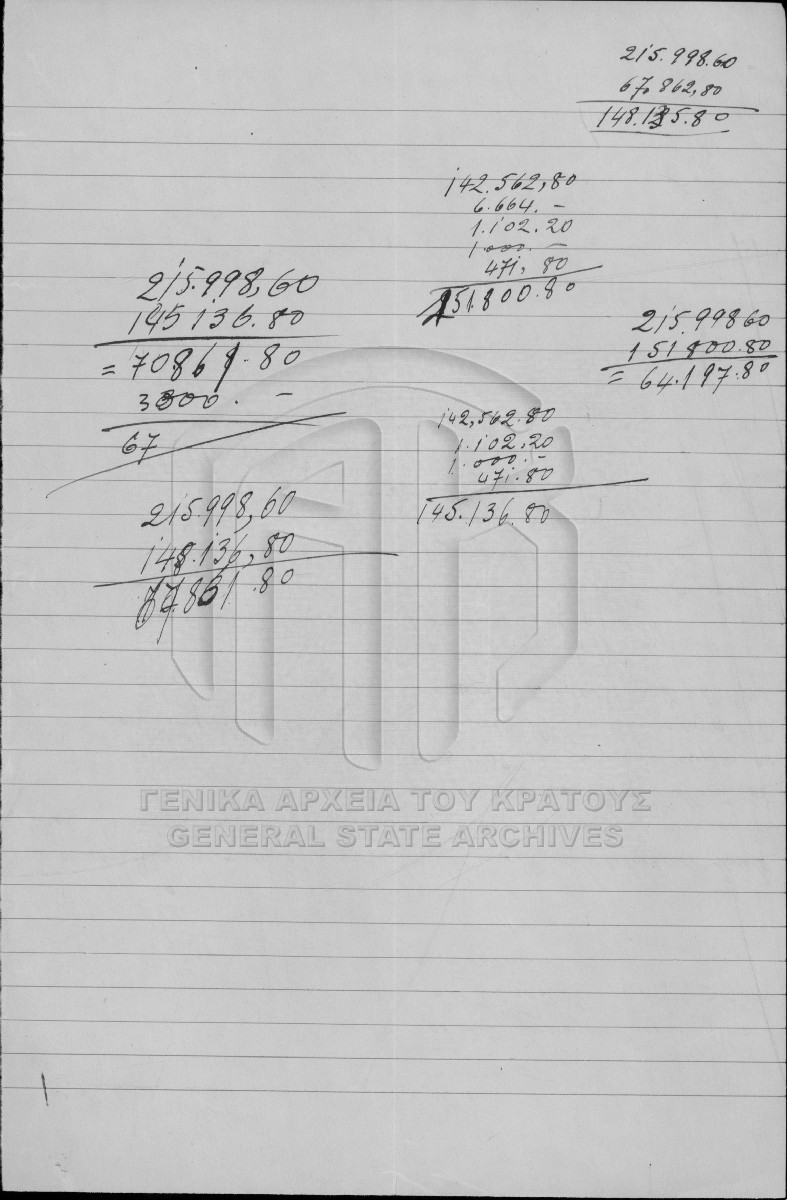 215.998.60
67.862,80
148.135.80
142.562,80
6.664.–
1.102.20
1.000.–
471,80
151.800.80
215.998,60
145136.80
=70861.80
3000.–
67
215.99860
151800.80
=64.197.80
142,562.80
1.102,20
1.000.–
471.80
145.136.80
215.998,60
148.136,80
67.861.80
ΓΕΝΙΚΑ ΑΡΧΕΙΑ ΤΟΥ ΚΡΑΤΟΥΣ
GENERAL STATE ARCHIVES